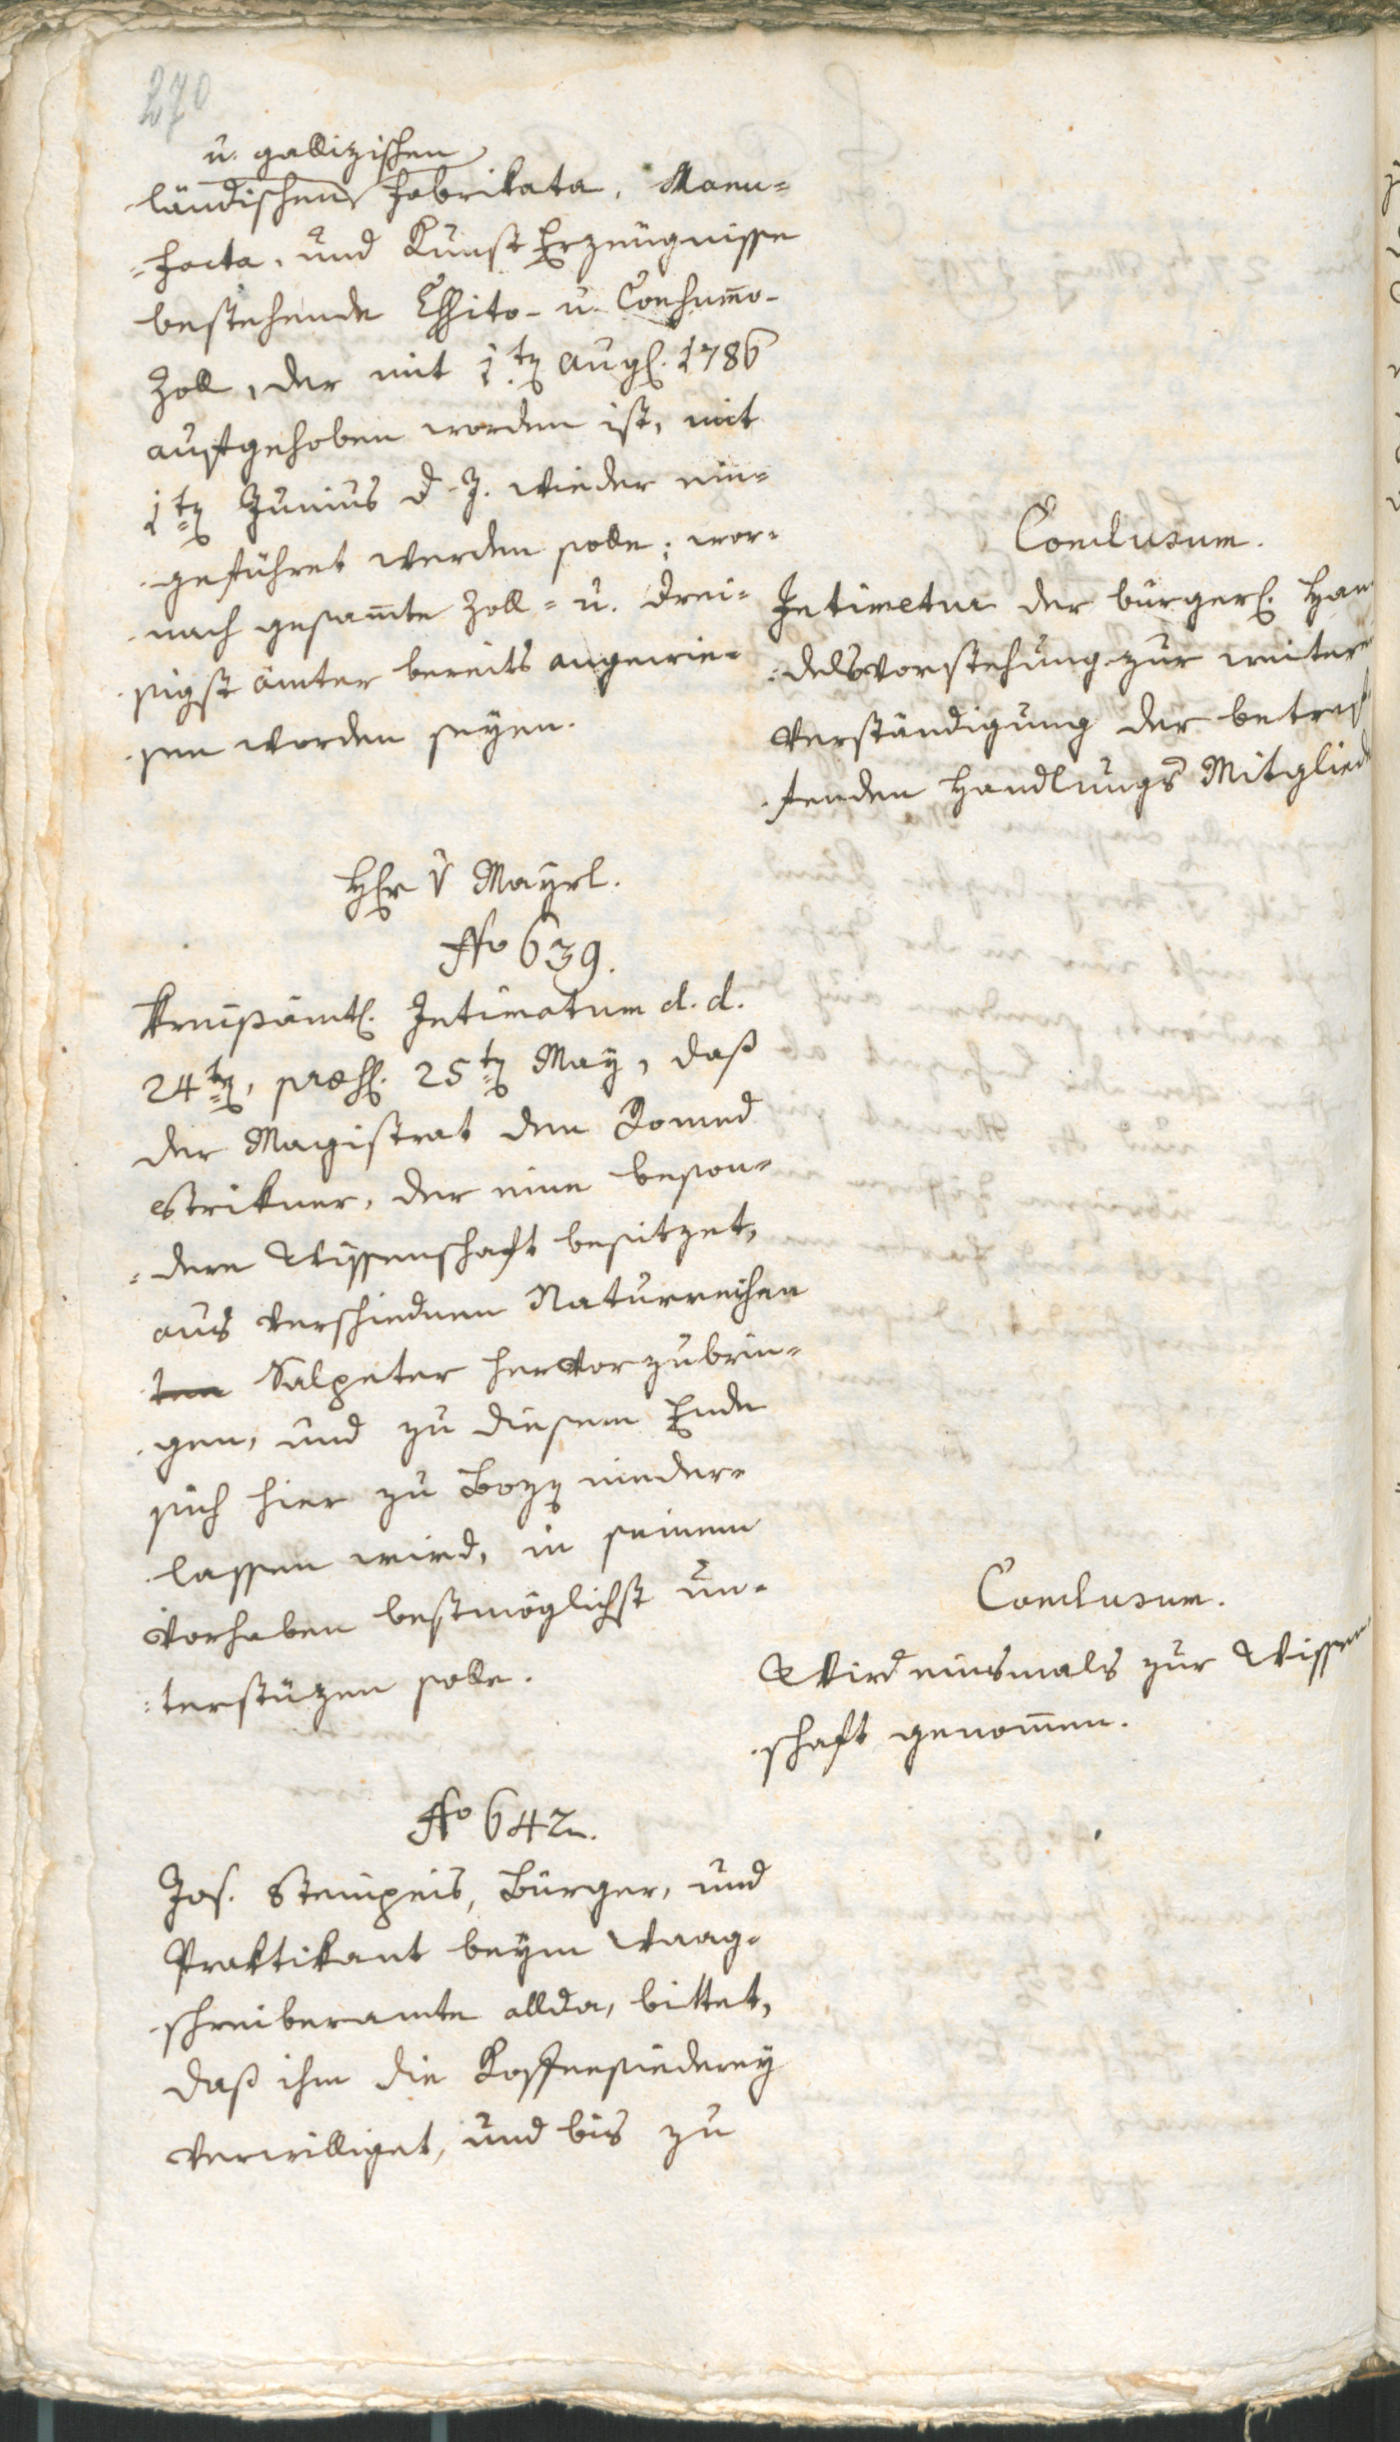 270
u. gallizischen
ländischen Fabrikata, Manu-
-facta, und Kunst Erzeugnisse
bestehende Essito- u. Consumo-
Zoll, der mit 1.ten Augs. 1786
aufgehoben worden ist, mit
1ten Junius d. J. wieder ein-
geführet werden solle; wor-
nach gesamte Zoll- u. Drei-
sigst ämter bereits angewie-
sen worden seyen.
Conclusum.
Intimetur der bürgerl. Han
delsvorstehung zur weitere
Verständigung der betref
fenden Handlungs Mitglied
Hr v Mayrl.
No 639.
Kreisämtl. Intimatum d. d.
24ten, præs. 25ten May, daß
der Magistrat dem Romed
Strikner, der eine beson-
-dere Wissenschaft besitzet,
aus verschiednen Naturreichen
ten Salpeter hervorzubrin-
gen, und zu diesem Ende
sich hier zu Bozen nieder-
lassen wird, in seinem
Vorhaben bestmöglichst un-
terstüzen solle.
Conclusum.
Wird einsmals zur Wissen
schaft genommen.
No 642.
Jos. Steinpeis, Bürger, und
Praktikant beym Waag-
schreiberamte allda, bittet,
daß ihm die Kaffeesiederey
verwilliget, und bis zu